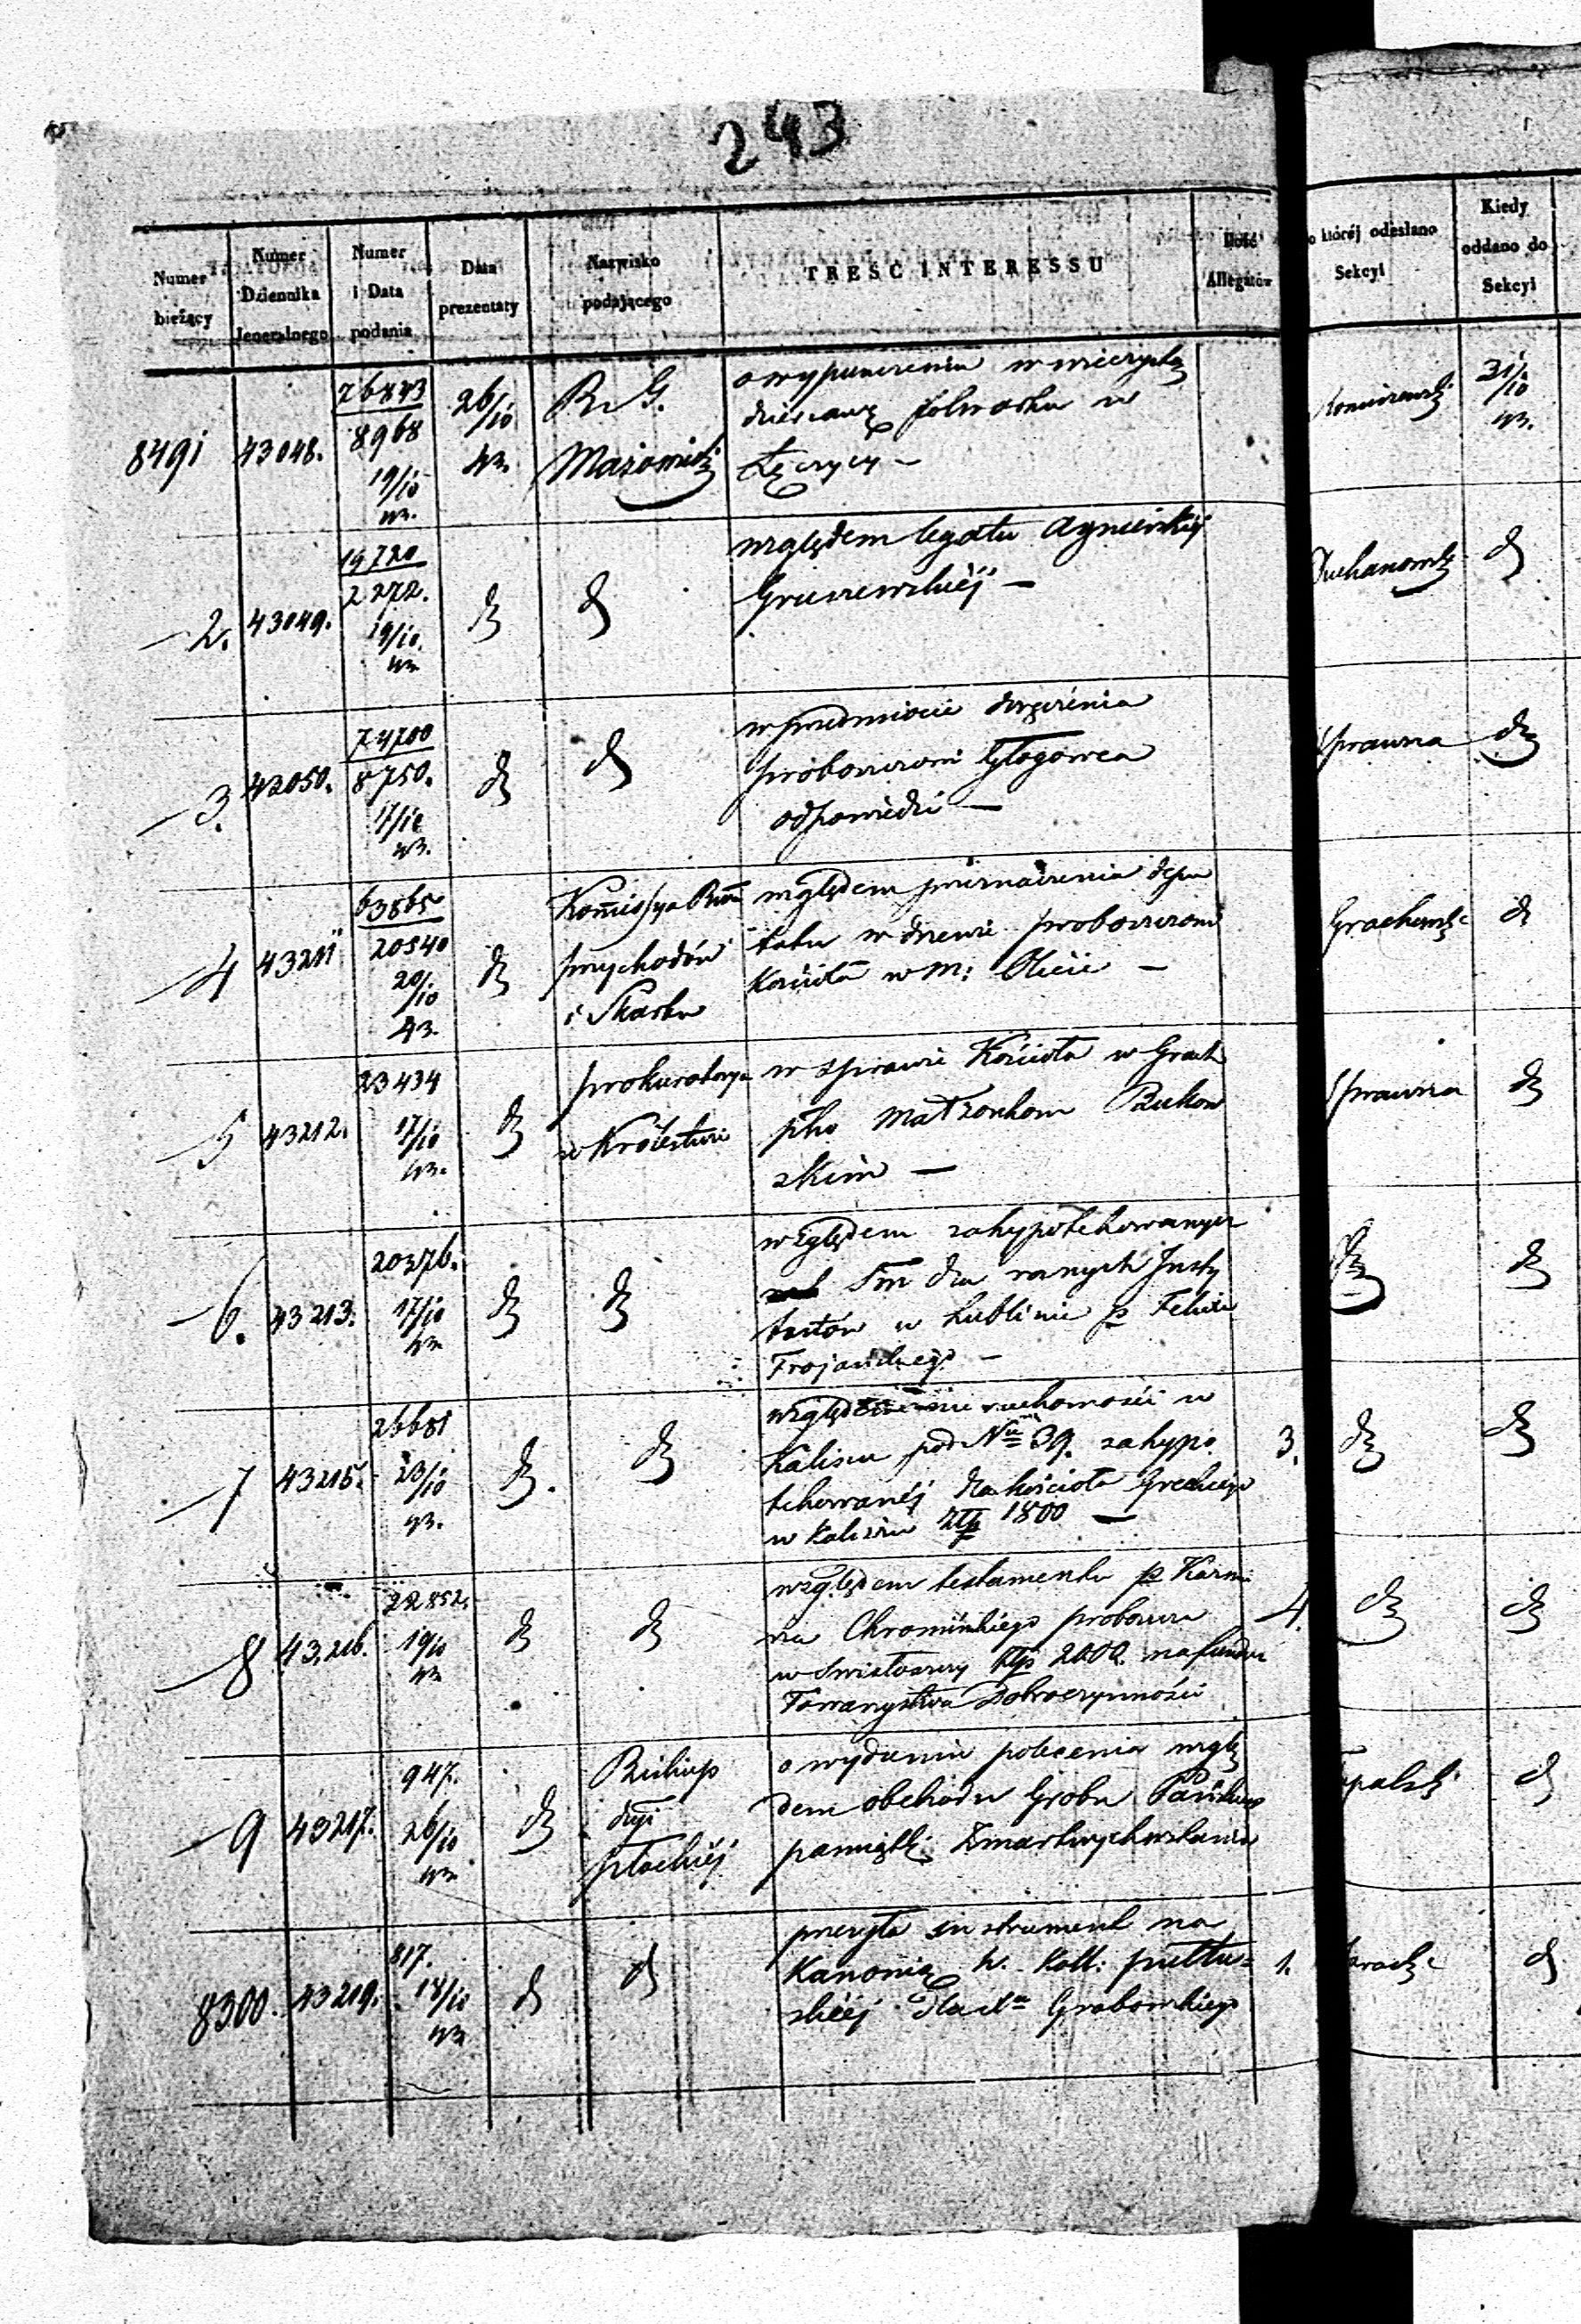 243
Numer bieżący
Numer Dziennika Jeneralnego
Numer i Data podania
Data prezentaty
Nazwisko podającego
TREŚĆ INTERESSU
Ilość Allegatów
o któréj odesłano Sekcyi
Kiedy oddano do Sekcyi
8491 43048. 76843 8968 19/10 43. 26/10 43. R. G. Mazowiecki
o wypuszczeniu w wieczystą
dzierżawę folwarku w
Łęczycy —
31/10 43.
2. 43049. 19720 2272. 19/10 43 d d
względem legatu Agnieszki
Gruszewskiéj —
d
3. 43050. 74700 8750. 17/10 43. d d
w przedmiocie doręczenia
proboszczowi Głogowca
odpowiedzi —
Sprawna d
4 43211 63865 20540 20/10 43. d Komissya Rzą przychodów i Skarbu
względem przeznaczenia depu
tatu w drzewie proboszczowi
Kościoła w m:
d
5 43212. 23434 17/10 43. d prokuratorya w Królestwie
w sprawie Kościoła w
pko Małżonkom Bukow
skim —
Sprawna d
6. 43213. 20376. 17/10 43 d d
względem zahypotekowanych
Sm dla rożnych Insty
tutów w Lublinie p Felixa
Trojańskiego —
d d
7 43215. 26681 23/10 43. d. d
względem nieruchomości w
Kaliszu pod Nem 39. zahypo
tekowanéj dla kościoła Greckiego
w Kaliszu Złp 1800 —
3. d d
8 43,216. 22852. 19/10 43 d d
względem testamentu p Kazmi
rza Chromińskiego proboszcza
w Złp 2000. na fundusz
Towarzystwa Dobroczynności
4. d d
9 43217. 947. 26/10 43 d Biskup dyi płockiéj
o wydanie polecenia wzglę
dem obchodu Grobu Pańskiego
pamiątki Zmartwychwstania
d
8300. 43219. 817. 18/10 43 d d
przesyła instrument na
Kanonią h. Koll: pułtu-
skiéj dla Xa Grabowskiego
1. d